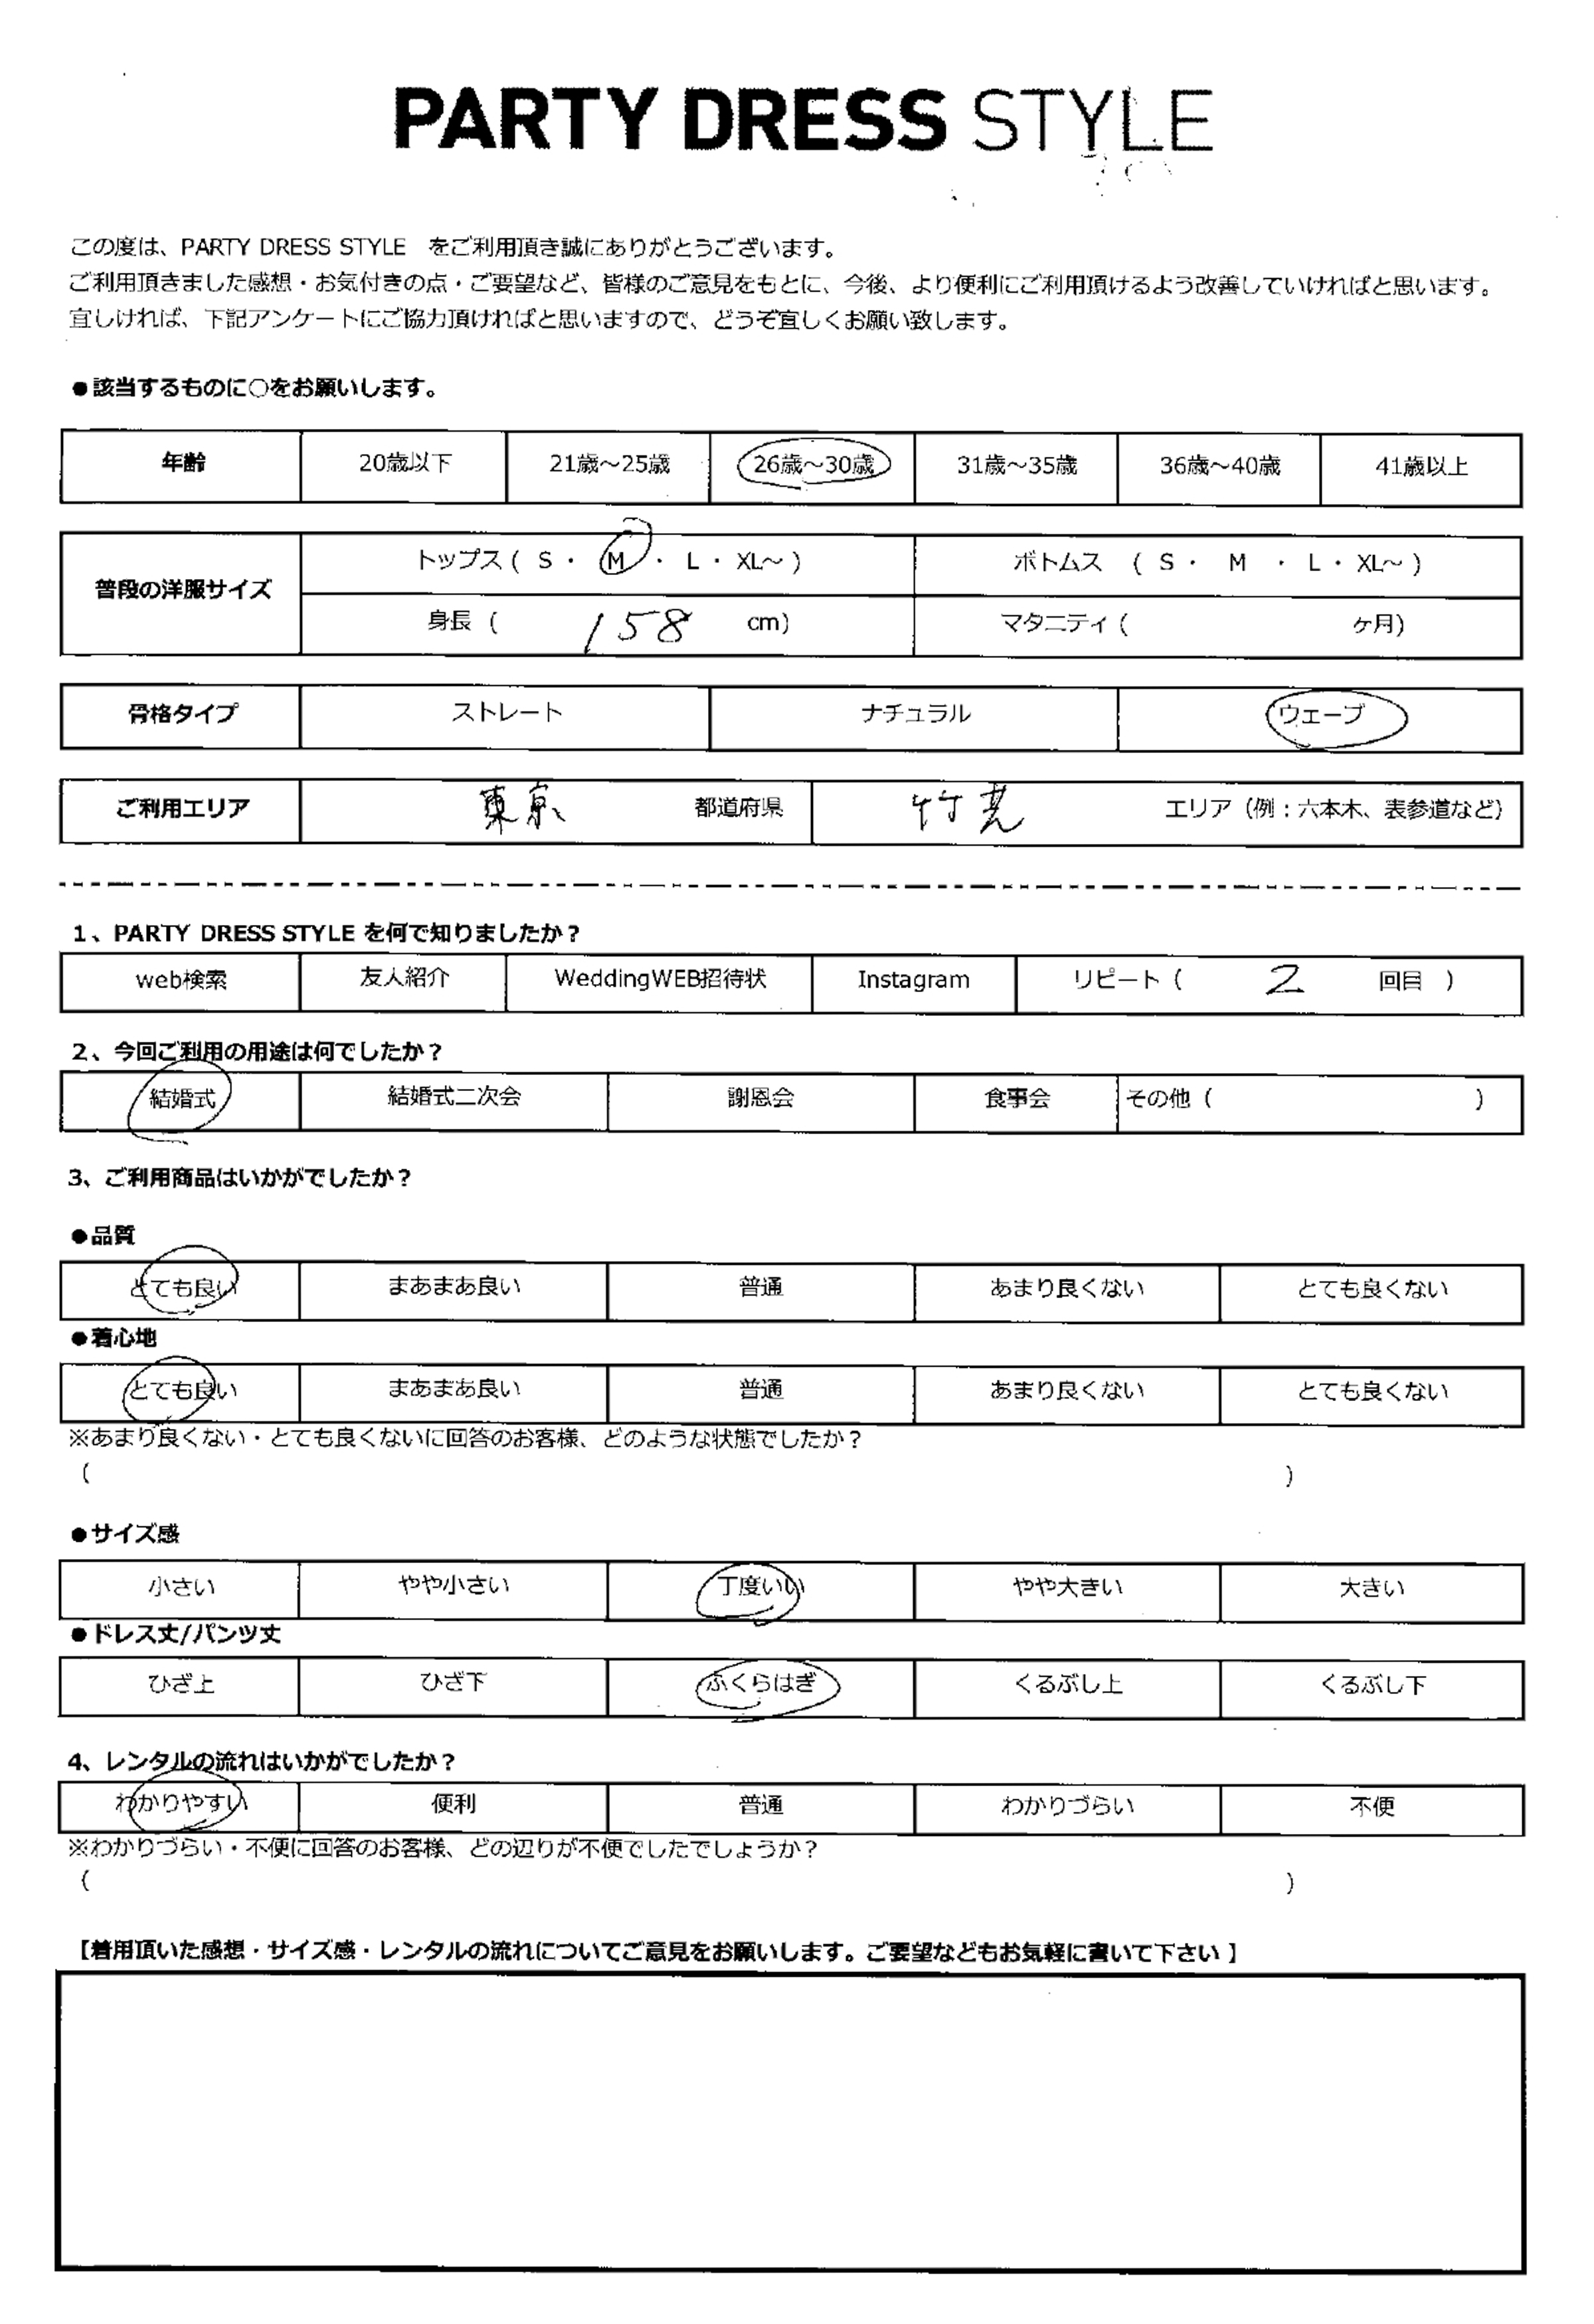 PARTY DRESS STYLE
この度は、PARTY DRESS STYLE をご利用頂き誠にありがとうございます。
ご利用頂きました感想・お気付きの点・ご要望など、皆様のご意見をもとに、今後、より便利にご利用頂けるよう改善していければと思います。
宜しければ、下記アンケートにご協力頂ければと思いますので、どうぞ宜しくお願い致します。
●該当するものに○をお願いします。
年齢 20歳以下 21歳～25歳 26歳～30歳 31歳～35歳 36歳～40歳 41歳以上
普段の洋服サイズ
トップス ( S ・ M ・ L ・ XL～ ) ボトムス ( S ・ M ・ L ・ XL～ )
身長 ( 158 cm) マタニティ ( ヶ月)
骨格タイプ ストレート ナチュラル ウェーブ
ご利用エリア 東京 都道府県 竹芝 エリア（例：六本木、表参道など）
1、PARTY DRESS STYLE を何で知りましたか？
web検索 友人紹介 WeddingWEB招待状 Instagram リピート ( 2 回目 )
2、今回ご利用の用途は何でしたか？
結婚式 結婚式二次会 謝恩会 食事会 その他 ( )
3、ご利用商品はいかがでしたか？
●品質
とても良い まあまあ良い 普通 あまり良くない とても良くない
●着心地
とても良い まあまあ良い 普通 あまり良くない とても良くない
※あまり良くない・とても良くないに回答のお客様、どのような状態でしたか？
( )
●サイズ感
小さい やや小さい 丁度いい やや大きい 大きい
●ドレス丈/パンツ丈
ひざ上 ひざ下 ふくらはぎ くるぶし上 くるぶし下
4、レンタルの流れはいかがでしたか？
わかりやすい 便利 普通 わかりづらい 不便
※わかりづらい・不便に回答のお客様、どの辺りが不便でしたでしょうか？
( )
【着用頂いた感想・サイズ感・レンタルの流れについてご意見をお願いします。ご要望などもお気軽に書いて下さい】